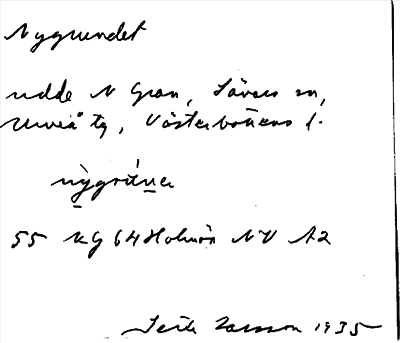 Nygrundet
udde N Gran, Sävars sn,
Umeå tg, Västerbottens l.
nỳgrúnne
55 KG 64 Holmön NV A2
Larsson 1935